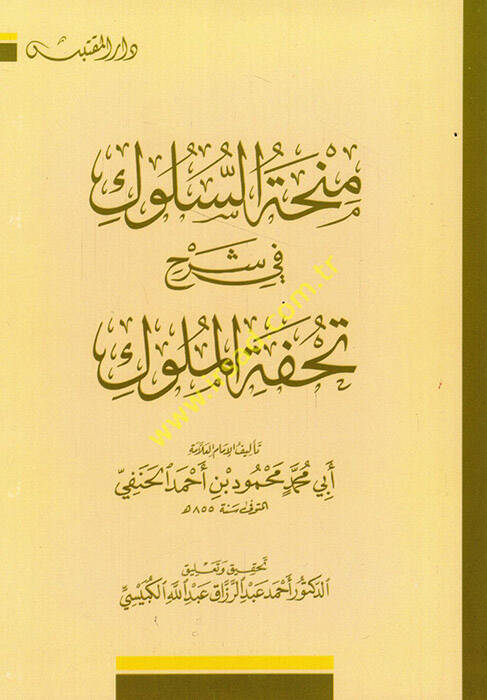 دار المقتبس
مِنْحَةُ السُّلُوكِ
فِي شَرْحِ
تُحْفَةِ الْمُلُوكِ
تأليف الإمام العلامة
أَبِي مُحَمَّدٍ مَحْمُود بْنِ أَحْمَد الحَنَفِيّ
المتوفى سنة ٨٥٥ هـ
تحقيق وتعليق
الدكتور أحمد عبد الرزاق عبد الله الكبيسي